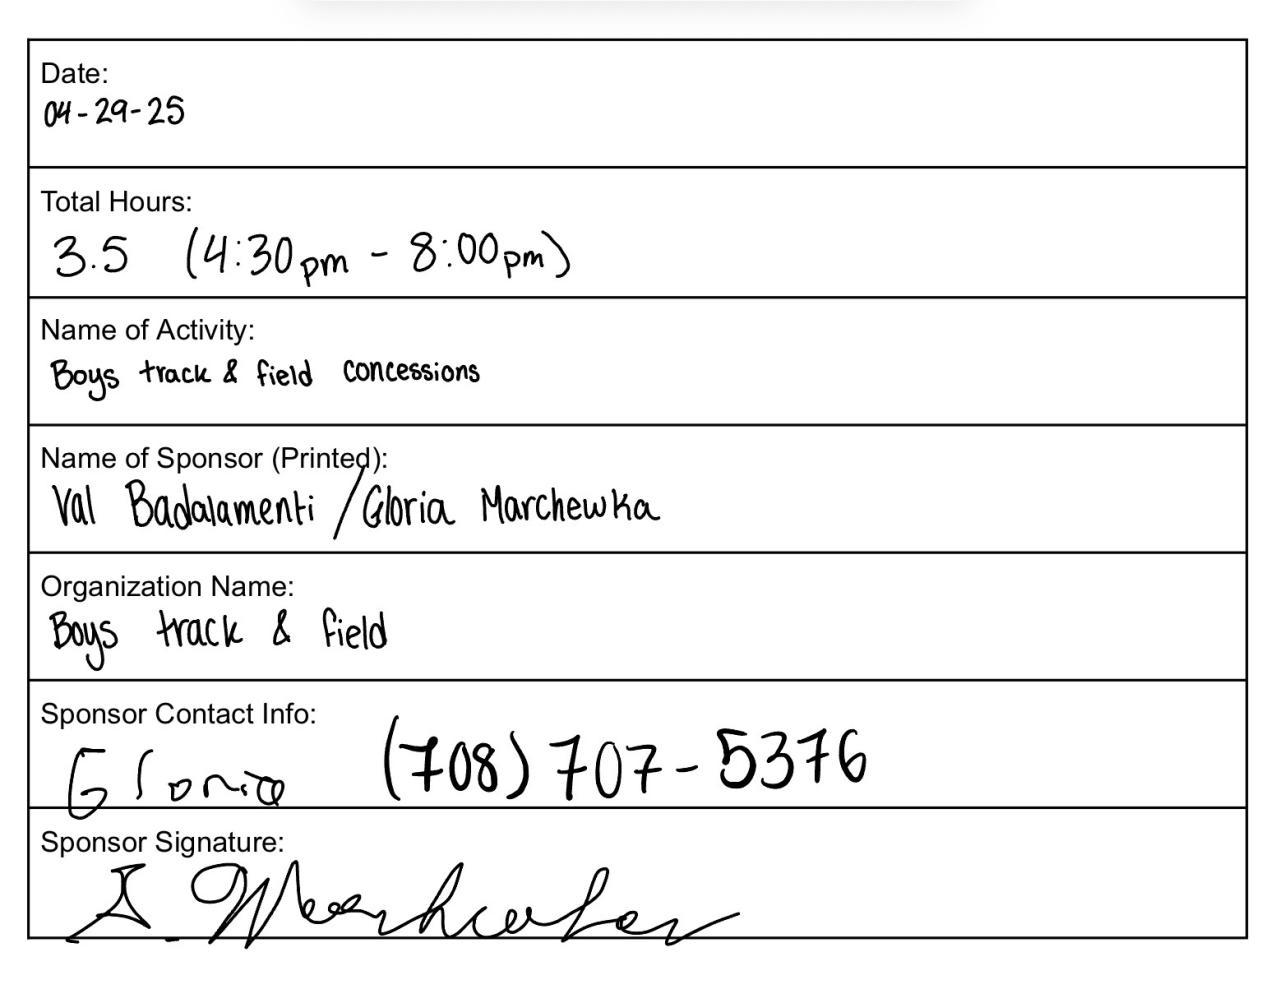 Date:
04-29-25
Total Hours:
3.5 (4:30pm - 8:00pm)
Name of Activity:
Boys track & field concessions
Name of Sponsor (Printed):
Val Badalamenti / Gloria Marchewka
Organization Name:
Boys track & field
Sponsor Contact Info:
Gloria (708) 707-5376
Sponsor Signature:
G. Marchewka